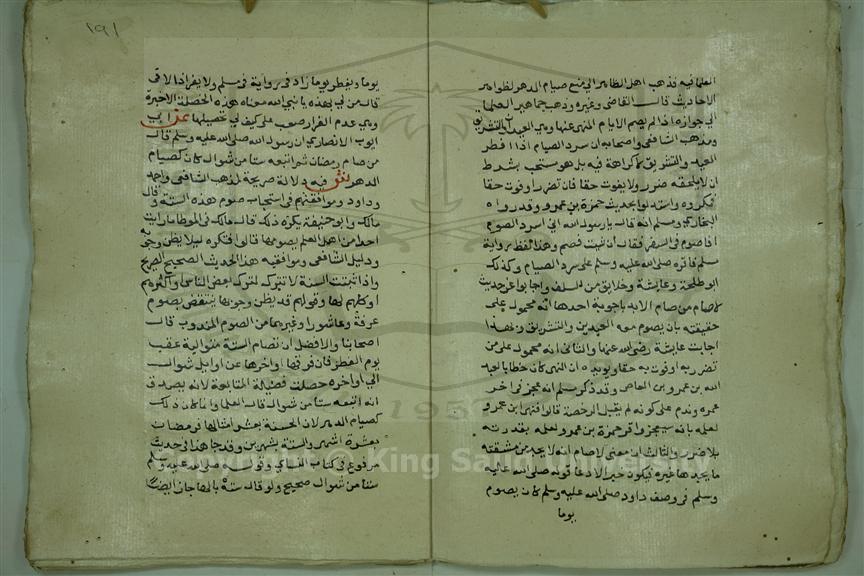 العلما فيه فذهب اهل الظاهر الى منع صيام الدهر لظواهر
الاحاديث قال القاضي وغيره وذهب جماهير العلما
الى جوازه اذا لم يصم الايام المنهي عنها وهي العيدان والتشريق
ومذهب الشافعي واصحابه ان سرد الصيام اذا افطر
العيد والتشريق لا كراهة فيه بل هو مستحب بشرط
ان لا يلحقه ضرر ولا يفوت حقا فان تضرر او فوت حقا
فكروه واستدلوا بحديث حمزة بن عمرو وقد رواه
البخاري ومسلم انه قال يا رسول الله اني اسرد الصوم
افاصوم في السفر فقال ان شئت فصم وهذا لفظ رواية
مسلم فاقره صلى الله عليه وسلم على سرد الصيام وكذلك
ابو طلحة وعايشة وخلايق من السلف واجابوا عن حديث
لا صام من صام الابد باجوبة احدها انه محمول على
حقيقته بان يصوم معه العيدين والتشريق وبهذا
اجابت عايشة رضي الله عنها والثاني انه محمول على من
تضرر به او فوت به حقا ويويده ان النهي كان خطابا لعبد
الله بن عمرو بن العاص وقد ذكر مسلم انه عجز في اخر
عمره وندم على كونه لم يقبل الرخصة قالوا فنهى ابن عمرو
لعلمه بانه سيعجز واقر حمزة بن عمرو لعلمه بقدرته
بلا ضرر والثالث ان معنى لا صام انه لا يجد من مشقته
ما يجدها غيره فيكون خبرا لا دعا قوله صلى الله عليه
وسلم في وصف داود صلى الله عليه وسلم كان يصوم
يوما
١٩١
يوما ويفطر يوما زاد في رواية في مسلم ولا يفر اذا لاقى
قال من لي بهذه يا نبي الله معناه هذه الخصلة الاخيرة
وهي عدم الفرار صعب على كيف لي تحصيلها عن ابي
ايوب الانصاري ان رسول الله صلى الله عليه وسلم قال
من صام رمضان ثم اتبعه ستا من شوال كان كصيام
الدهر ش فيه دلالة صريحة لمذهب الشافعي واحمد
وداود وموافقيهم في استحباب صوم هذه الستة وقال
مالك وابو حنيفة يكره ذلك قال مالك في الموطا ما رايت
احدا من اهل العلم يصومها قالوا فتكره ليلا يظن وجوبه
ودليل الشافعي وموافقيه هذا الحديث الصحيح الصريح
واذا ثبتت السنة لا تترك لترك بعض الناس واكثرهم
او كلهم لها وقولهم قد يظن وجوبها ينتقض بصوم
عرفة وعاشورا وغيرهما من الصوم المندوب قال
اصحابنا والافضل ان تصام الستة متوالية عقب
يوم الفطر فان فرقها او اخرها عن اوايل شوال
الى اواخره حصلت فضيلة المتابعة لانه يصدق
انه اتبعه ستا من شوال قال العلما وانما كان ذلك
كصيام الدهر لان الحسنة بعشر امثالها فرمضان
بعشرة اشهر والستة بشهرين وقد جا هذا في حديث
مرفوع في كتاب النساي وقوله صلى الله عليه وسلم
ستا من شوال صحيح ولو قال ستة بالها جاز ايضا
1957
Copyright © King Saud University